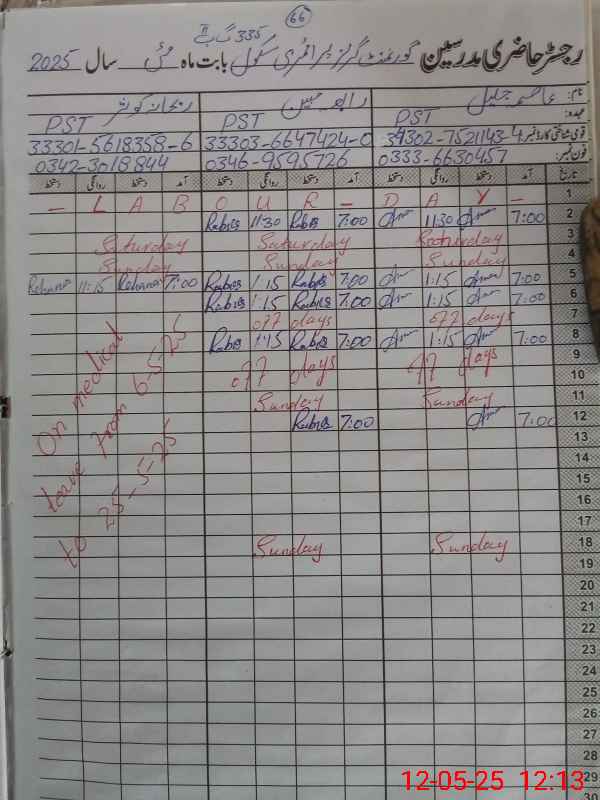 66
335 گ ب II
رجسٹر حاضری مدرسین گورنمنٹ گرلز پرائمری سکول بابت ماہ مئی سال 2025
نام: عاصمہ جلیل رابعہ حسین ریحانہ کوثر
عہدہ: PST PST PST
قومی شناختی کارڈ نمبر 34302-7521143-4 33303-6647424-0 33301-5618358-6
فون نمبر: 0333-6630457 0346-9595726 0342-3018844
تاریخ آمد دستخط روانگی دستخط آمد دستخط روانگی دستخط آمد دستخط روانگی دستخط
1 – L A B O U R – D A Y –
2 Rabia 11:30 Rabia 7:00 11:30 7:00
3 Saturday Saturday Saturday
4 Sunday Sunday Sunday
5 Rehana 11:15 Rehana 7:00 Rabia 1:15 Rabia 7:00 1:15 7:00
6 Rabia 1:15 Rabia 7:00 1:15 7:00
7 off days off days
8 Rabia 1:15 Rabia 7:00 1:15 7:00
9 off days off days
10
11 Sunday Sunday
12 Rabia 7:00 7:00
13
14
15
16
17
18 Sunday Sunday
19
20
21
22
23
24
25
26
27
28
29
30
On medical
leave from 6-5-25
to 25-5-25
12-05-25 12:13